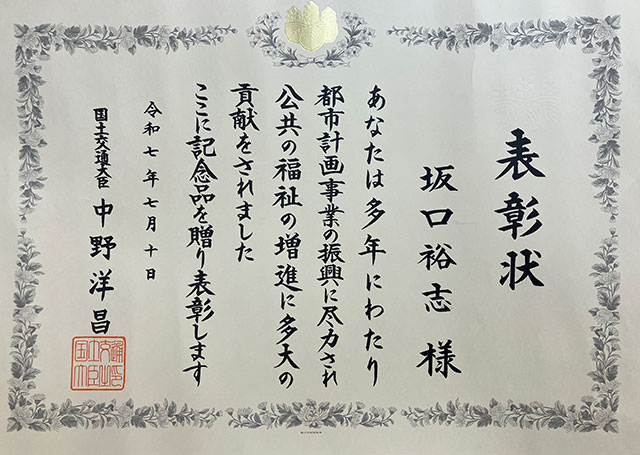 表彰状
坂口裕志 様
あなたは多年にわたり
都市計画事業の振興に尽力され
公共の福祉の増進に多大の
貢献をされました
ここに記念品を贈り表彰します
令和七年七月十日
国土交通大臣 中野洋昌
国土交通大臣之印